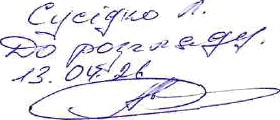 Сусідко Л.
До розгляду.
13.04.26